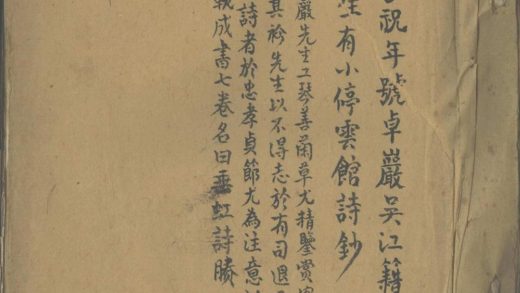 祝年號卓巖吳江籍
生有小停雲館詩鈔
嚴先生工琴善蘭草尤精鑒賞
其衿先生以不得志於有司退
詩者於忠孝貞節尤為注意
成書七卷名曰垂虹詩賸